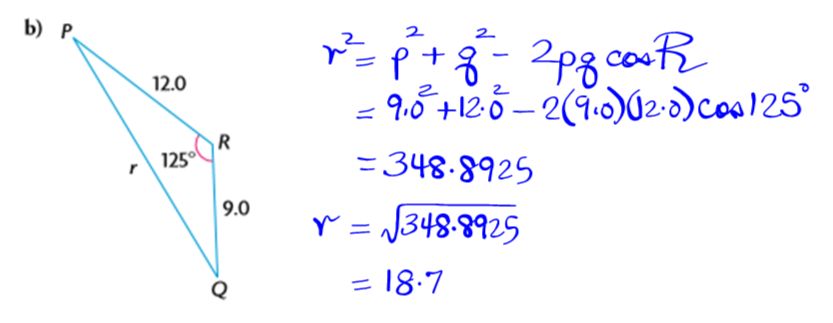 b) P
12.0
R
125°
r
9.0
Q
r² = p² + q² - 2pq cos R
= 9.0² + 12.0² - 2(9.0)(12.0) cos 125°
= 348.8925
r = √348.8925
= 18.7